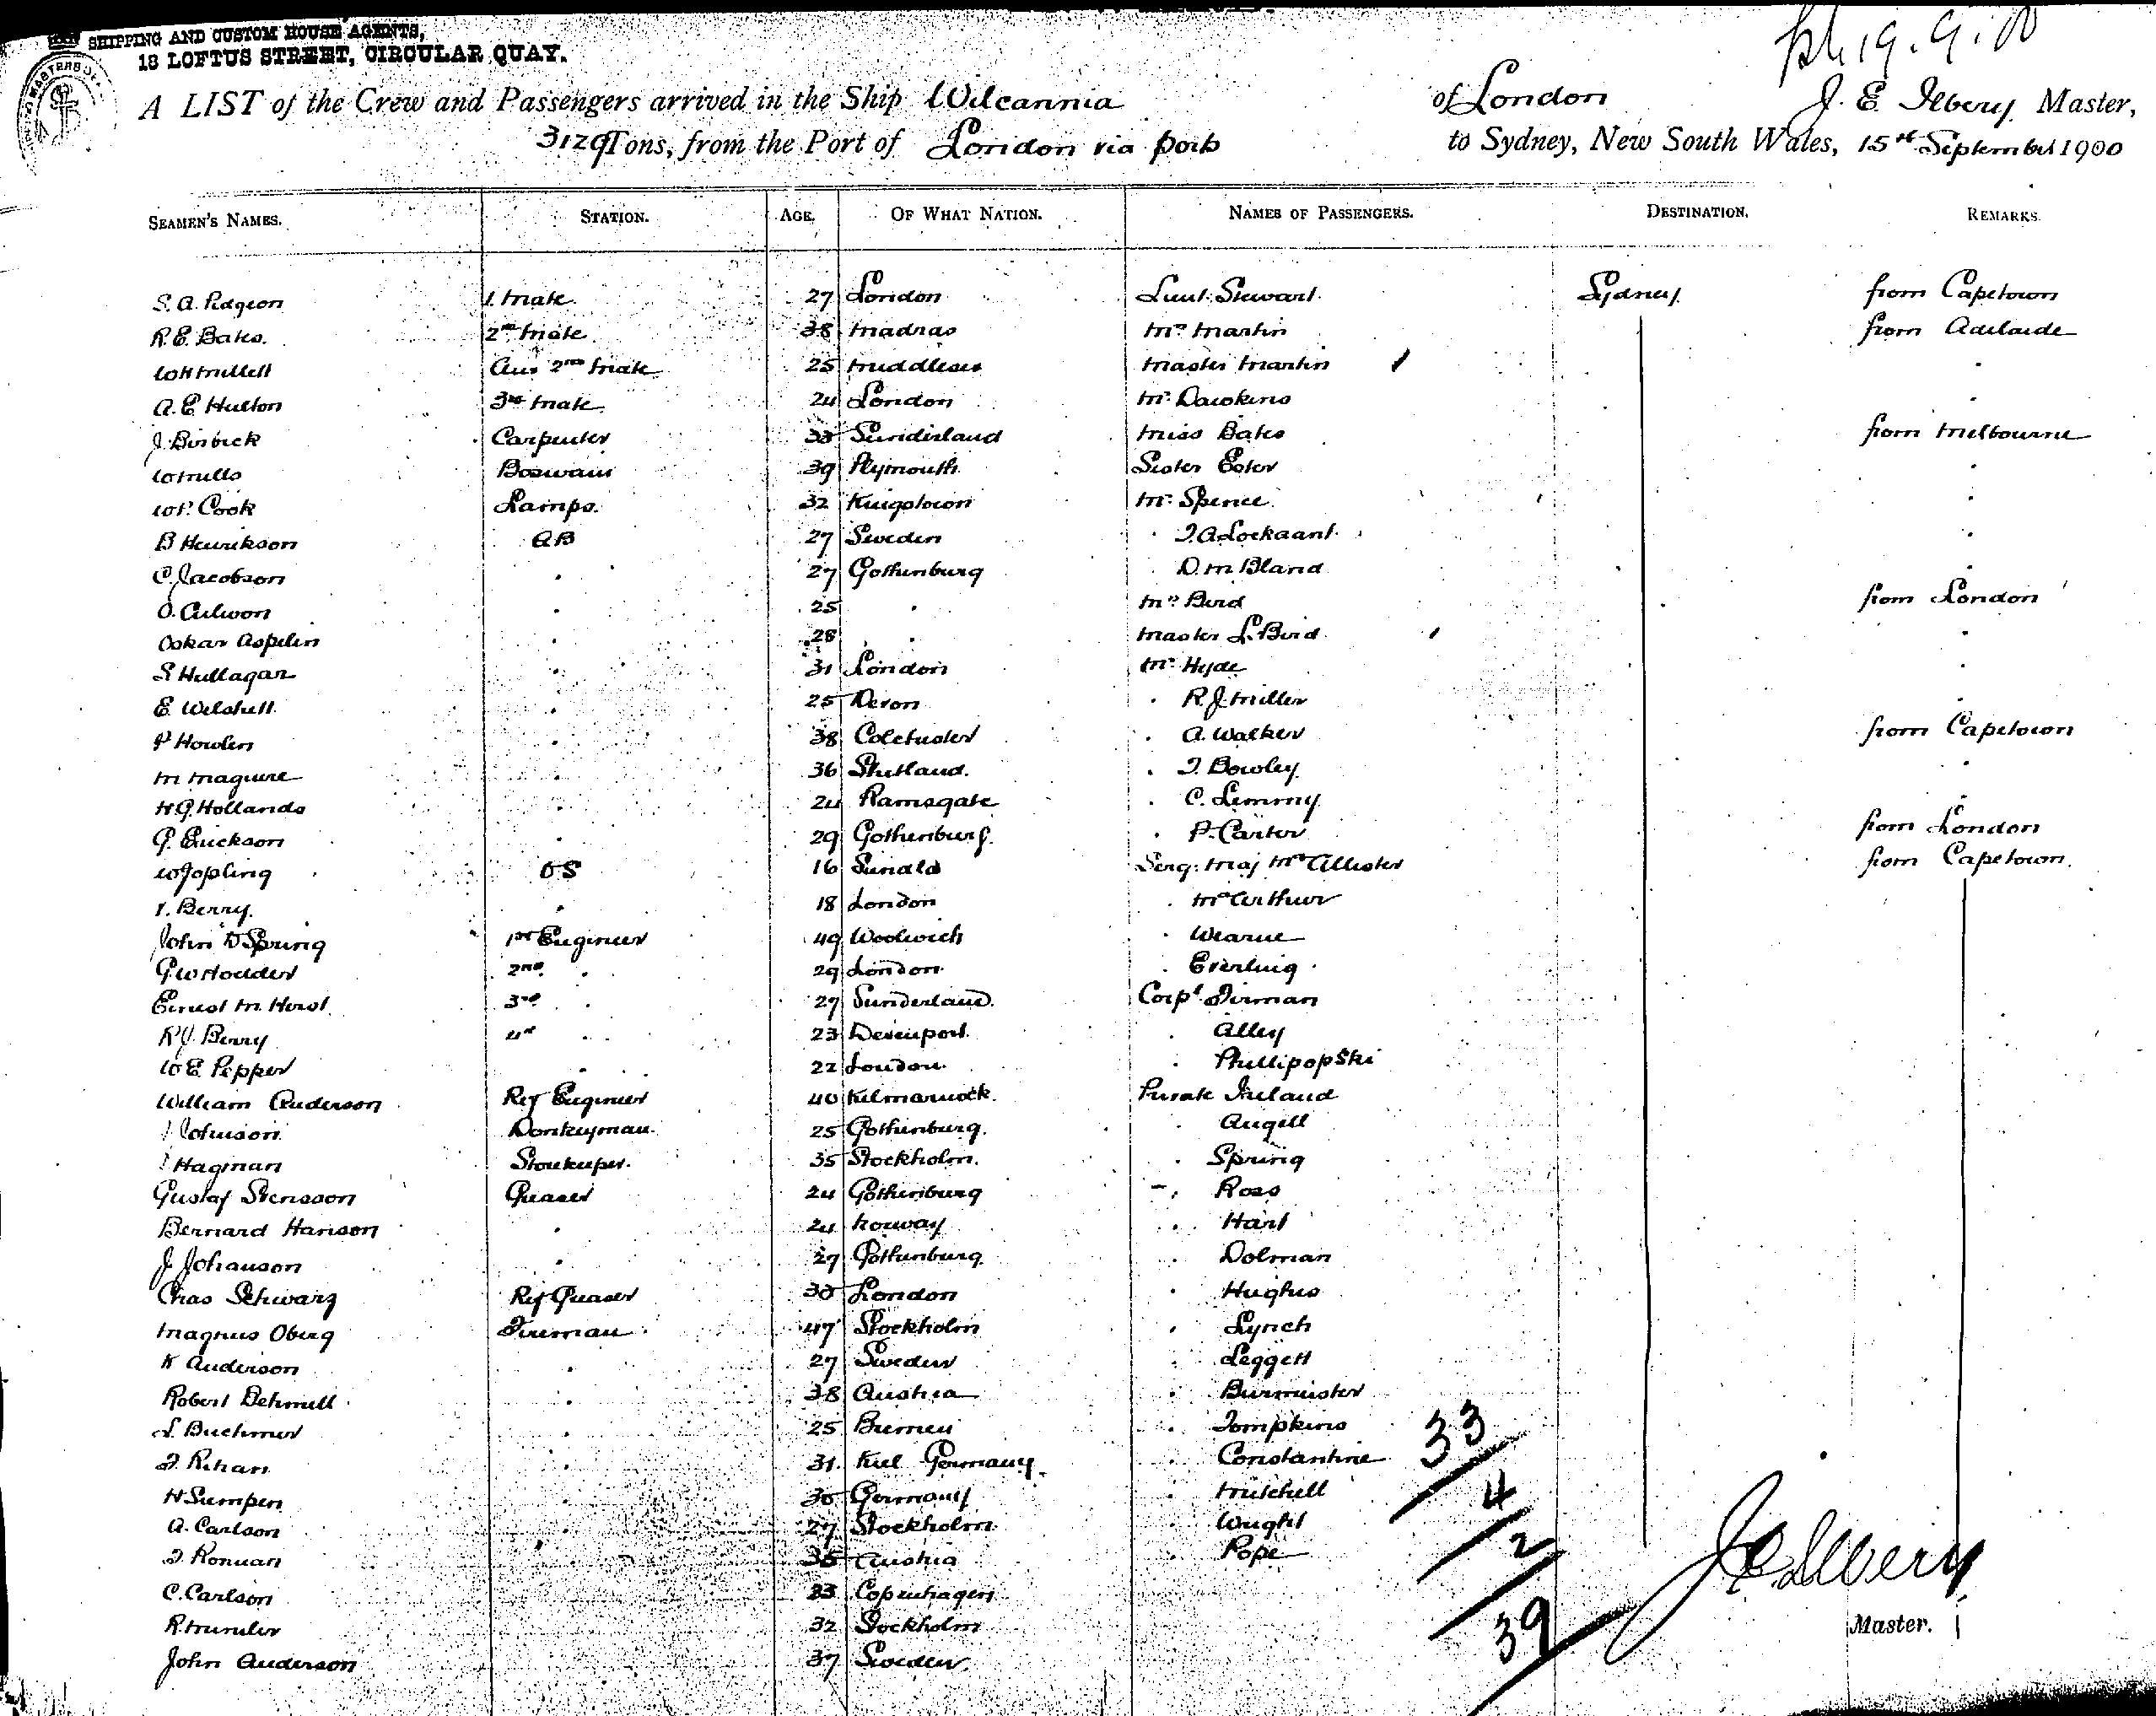 SHIPPING AND CUSTOM HOUSE AGENTS,
18 LOFTUS STREET, CIRCULAR QUAY.
19.9.00
A LIST of the Crew and Passengers arrived in the Ship Wilcannia of London J. E. Ilbery Master,
3129 Tons, from the Port of London via ports to Sydney, New South Wales, 15th September 1900
SEAMEN'S NAMES. STATION. AGE. OF WHAT NATION. NAMES OF PASSENGERS. DESTINATION. REMARKS.
S. A. Pidgeon 1. Mate 27 London Lieut. Stewart Sydney from Capetown
R. E. Bates 2nd Mate 38 Madras Mrs Martin from Adelaide
W H Millett Aux 2nd Mate 25 Middlesex Master Martin "
A. E Hutton 3rd Mate 24 London Mr. Dawkins "
J. Birbeck Carpenter 33 Sunderland Miss Bates from Melbourne
W Mills Boswain 39 Plymouth Sister Ester "
Wm Cook Lamps. 32 Kingstown Mr. Spence "
B Henrikson AB 27 Sweden " "
C. Jacobson " 27 Gothenburg " D. M Bland "
O. " 25 " Mrs Bird from London
Oskar Aspelin " 28 " Master L. Bird "
S Hullagar " 31 London Mr. Hyde "
E. " 25 Devon " R. J. Miller "
P Howlen " 38 Colchester " A. Walker from Capetown
M Maguire " 36 Shetland. " J. Bowley "
H. G. Hollands " 24 Ramsgate " C. Lemmy "
G. Erickson " 29 Gothenburg. " P. Carter from London
W Jopling OS 16 Sundld Serg: Maj McAllister from Capetown
T. Berry. " 18 London " McArthur
John D Spring 1st Engineer 49 Woolwich " Wearne
G. W Hodder 2nd " 29 London " Everling
Ernest M. Herst 3rd " 27 Sunderland. Corpl Firman
R J. Berry 4th " 23 Devenport. " Alley
W E. Pepper " " 22 London. " Phillipopski
William Anderson Ref Engineer 40 Kilmarnock. Private Ireland
J Johnson Donkeyman. 25 Gothenburg. " Angell
J Hagman Storekeeper. 35 Stockholm. " Spring
Gustaf Stensson Greaser 24 Gothenburg " Ross
Bernard Hanson " 24 Norway " Hart
J Johanson " 27 Gothenburg " Dolman
Chas Schwarz Ref Greaser 30 London " Hughes
Magnus Oberg Fireman 47 Stockholm " Lynch
K Anderson " 27 Sweden " Leggett
Robert Dehmell " 38 Austria " Burmeister
L. Buchmer " 25 Bremen " Tompkins
J. Rihan " 31 Kiel Germany " Constantine 33
H Sumpen " 30 Germany " Mitchell 4
A. Carlson " 27 Stockholm " Wright 2
J. Ronuan " 35 Austria " Pope
C. Carlson 33 Copenhagen 39 J E Ilbery
R. 32 Stockholm Master.
John Anderson 37 Sweden